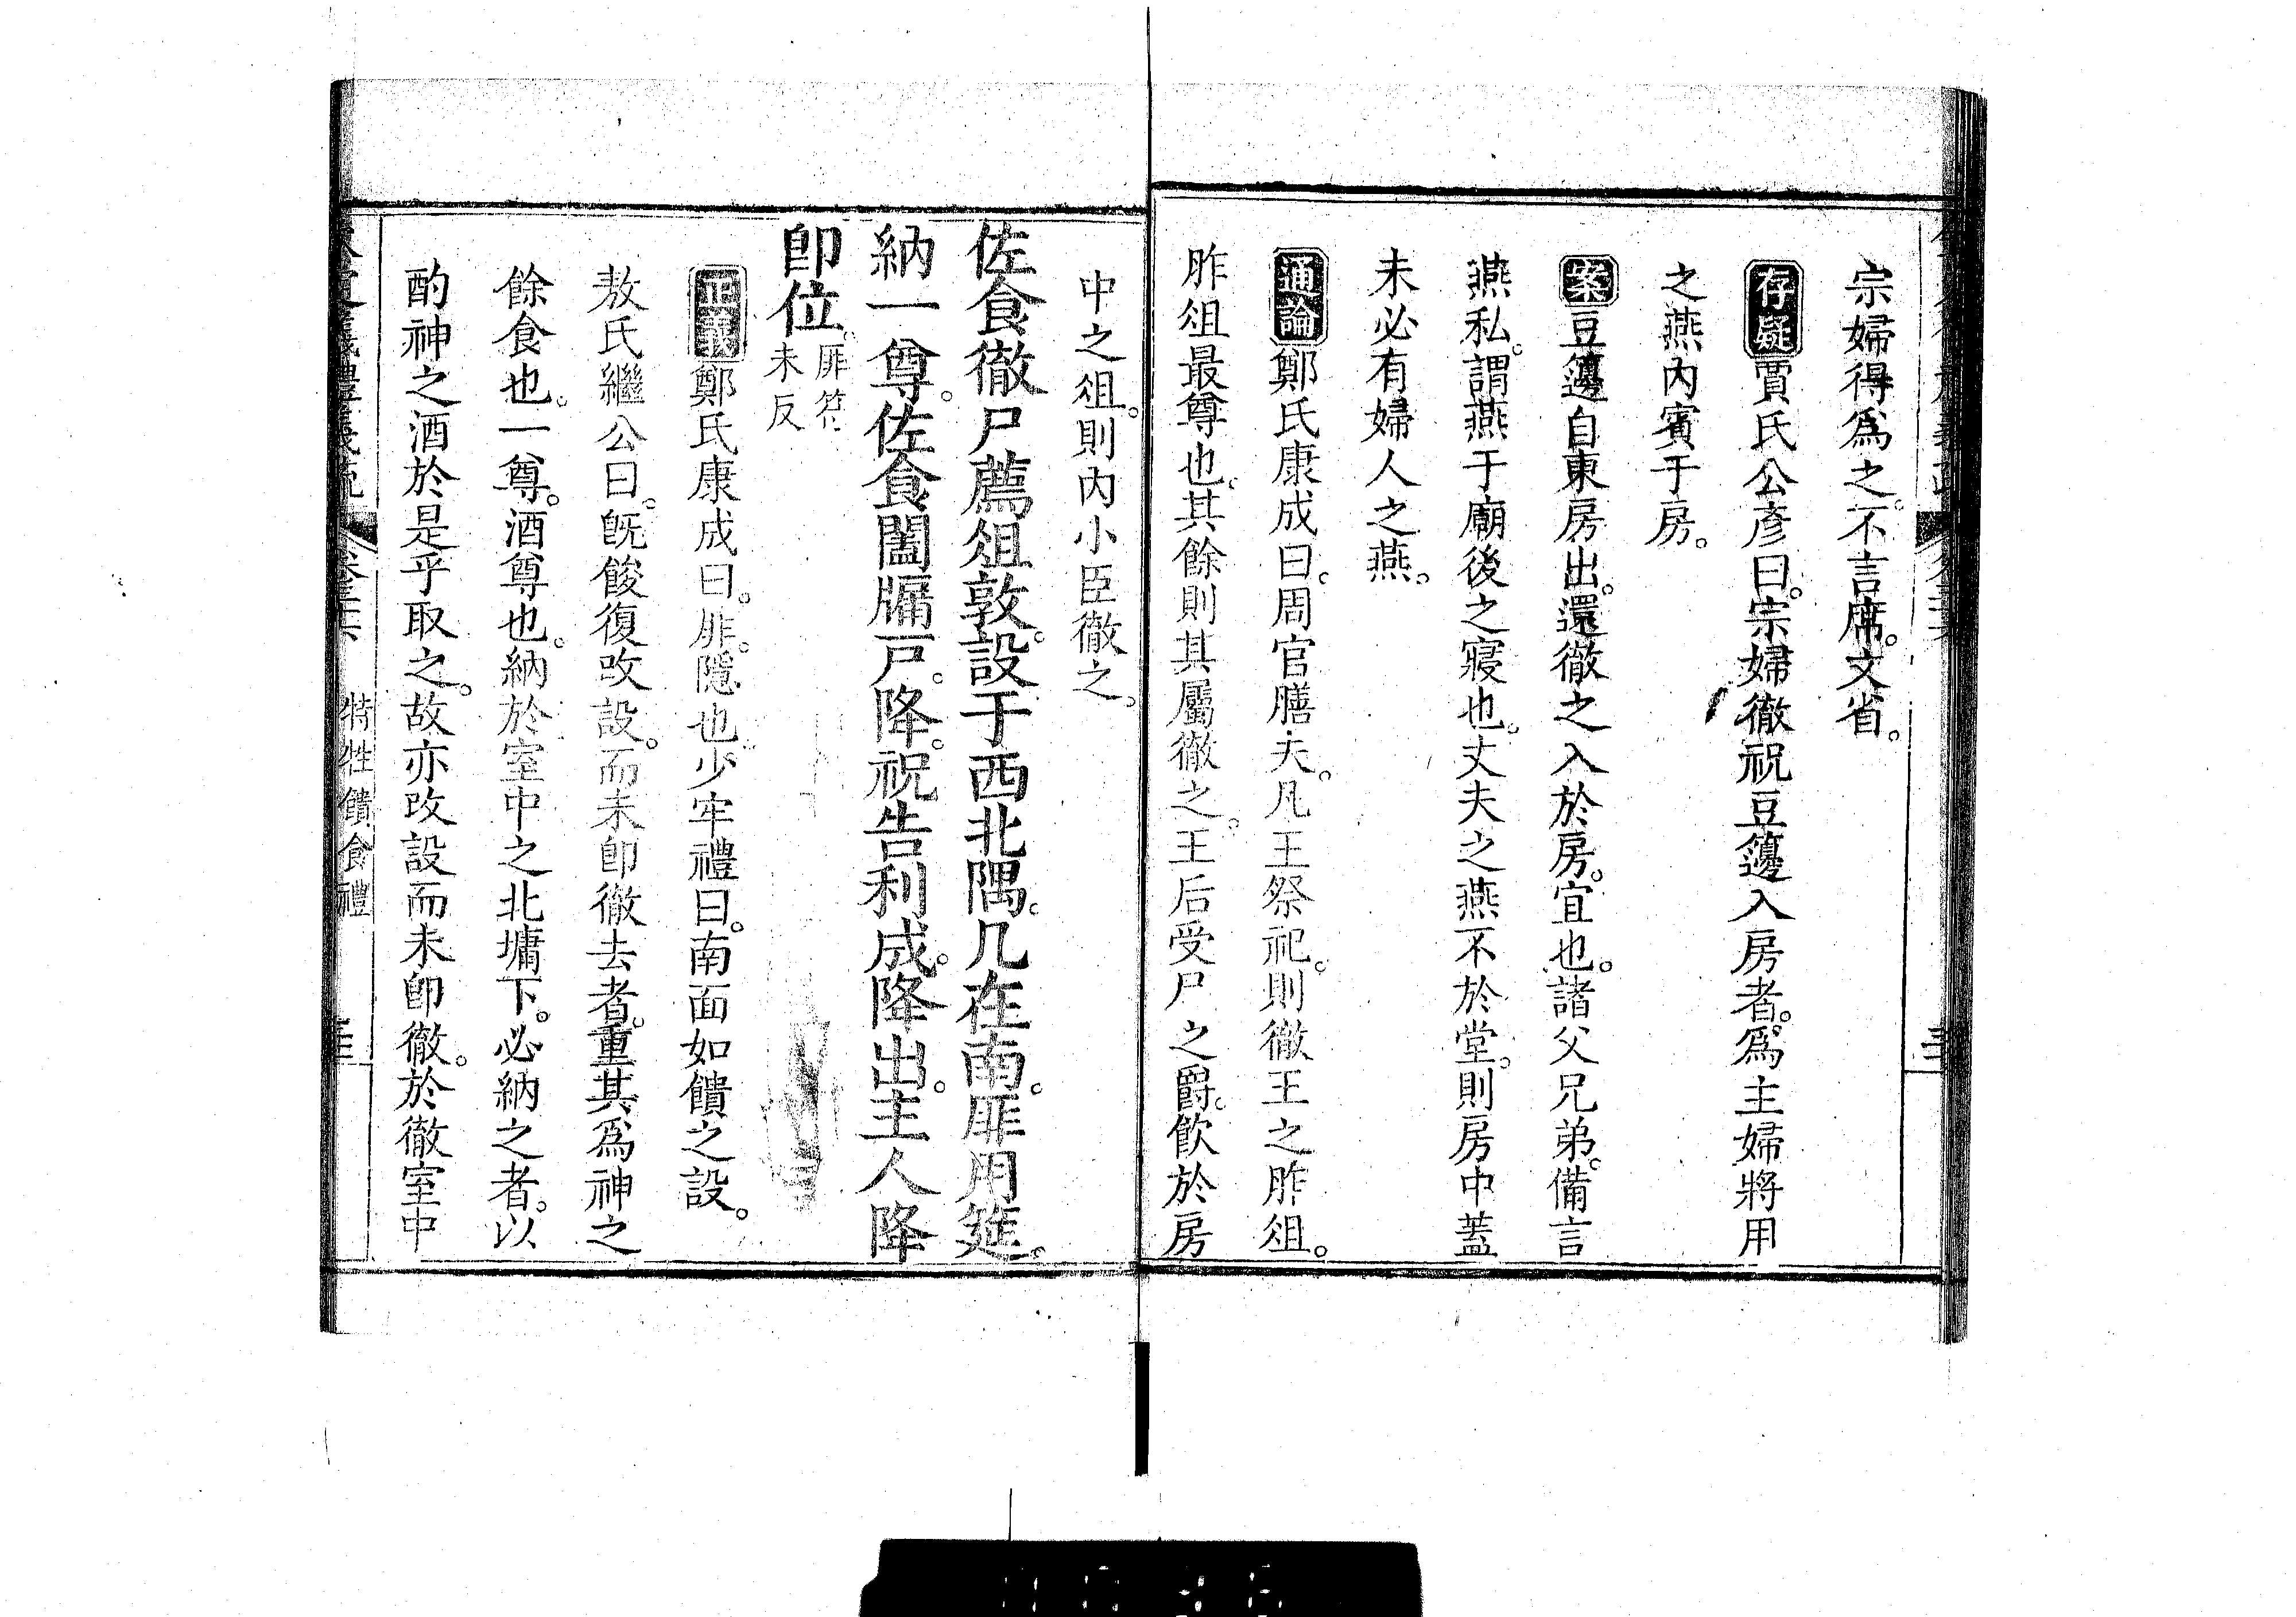 宗婦得爲之。不言席。文省。
存疑賈氏公彥曰。宗婦徹祝豆籩入房者。爲主婦將用
之燕內賓于房。
案豆籩自東房出。還徹之入於房。宜也。諸父兄弟。備言
燕私。謂燕于廟後之寢也。丈夫之燕不於堂。則房中蓋
未必有婦人之燕。
通論鄭氏康成曰。周官膳夫。凡王祭祀。則徹王之胙俎。
胙俎最尊也。其餘則其屬徹之。王后受尸之爵。飲於房
中之俎。則內小臣徹之。
佐食徹尸薦俎敦。設于西北隅。几在南。厞用筵。
納一尊。佐食闔牖戶。降。祝告利成。降出。主人降
即位。厞
未反
正義鄭氏康成曰。厞。隱也。少牢禮曰。南面如饋之設。
敖氏繼公曰。旣餕復改設。而未卽徹去者。重其爲神之
餘食也。一尊。酒尊也。納於室中之北墉下。必納之者。以
酌神之酒於是乎取之。故亦改設而未卽徹。於徹室中
義禮義疏 卷三六 特牲饋食禮